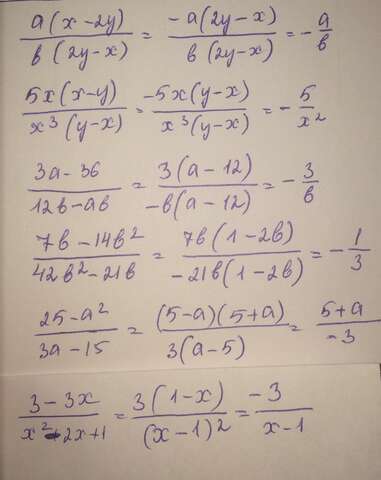 a(x-2y)/b(2y-x) = -a(2y-x)/b(2y-x) = -a/b
5x(x-y)/x³(y-x) = -5x(y-x)/x³(y-x) = -5/x²
3a-36/12b-ab = 3(a-12)/-b(a-12) = -3/b
7b-14b²/42b²-21b = 7b(1-2b)/-21b(1-2b) = -1/3
25-a²/3a-15 = (5-a)(5+a)/3(a-5) = 5+a/-3
3-3x/x²-2x+1 = 3(1-x)/(x-1)² = -3/x-1